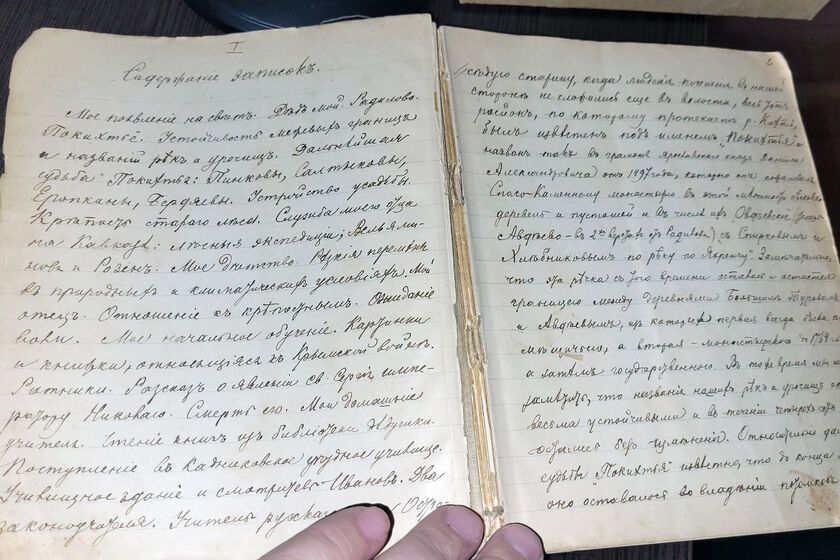 I.
Содержаніе записокъ.
Мое появленіе на свѣтъ. Дѣдъ мой. Радилово.
Покихтьё. Устойчивость межевыхъ границъ
и названій рѣкъ и урочищъ. Дальнѣйшая
судьба "Покихтья": Пинковы, Салтыковы,
Еропкины, Бердяевы. Устройство усадьбы.
Крѣпость стараго лѣса. Служба моего отца
на Кавказѣ: экспедиціи Вельями-
нова и Розенъ. Мое дѣтство. Рѣзкія перемѣны
въ природныхъ и климатическихъ условіяхъ. Мой
отецъ. Отношеніе къ крѣпостнымъ. Ожиданіе
воли. Мое начальное обученіе. Картинки
и книжки, относящіяся къ Крымской войнѣ.
Ратники. Разсказъ о явленіи св. Сергія импе-
ратору Николаю. Смерть его. Мои домашніе
учителя. Чтеніе книгъ изъ библіотеки дѣдушки.
Поступленіе въ кадниковское уѣздное училище.
Училищное зданіе и смотритель Ивановъ. Два
законоучителя. Учитель русскаго
2
сѣдую старину, когда людскія поселенія въ нашей
сторонѣ не сложились еще въ волости, весь этотъ
районъ, по которому протекаетъ р. Кихть,
былъ извѣстенъ подъ именемъ "Покихтья" и
названъ такъ въ грамотѣ ярославскаго князя Данила
Александровича отъ 1497 года, которою онъ пожаловалъ
Спасо-Каменному монастырю въ этой мѣстности нѣсколько
деревень и пустошей и въ числѣ ихъ Овдѣевское (нынѣ
Авдѣево – въ 2хъ верстахъ отъ Радилова) съ
по рѣку по Яренгу. Замѣчательно,
что эта рѣчка съ того времени оставалась и остается
границею между деревнями Большимъ
и Авдѣевымъ, изъ которыхъ первая всегда была по-
мѣщичьею, а вторая – монастырскою до 1764 г.
а затѣмъ государственною. Въ тоже время можно
замѣтить, что названія нашихъ рѣкъ и урочищъ
весьма устойчивыми и въ теченіи четырехъ сотъ
остались безъ измѣненія. Относительно
судьбы "Покихтья" извѣстно, что до конца
оно оставалось во владѣніи потомковъ